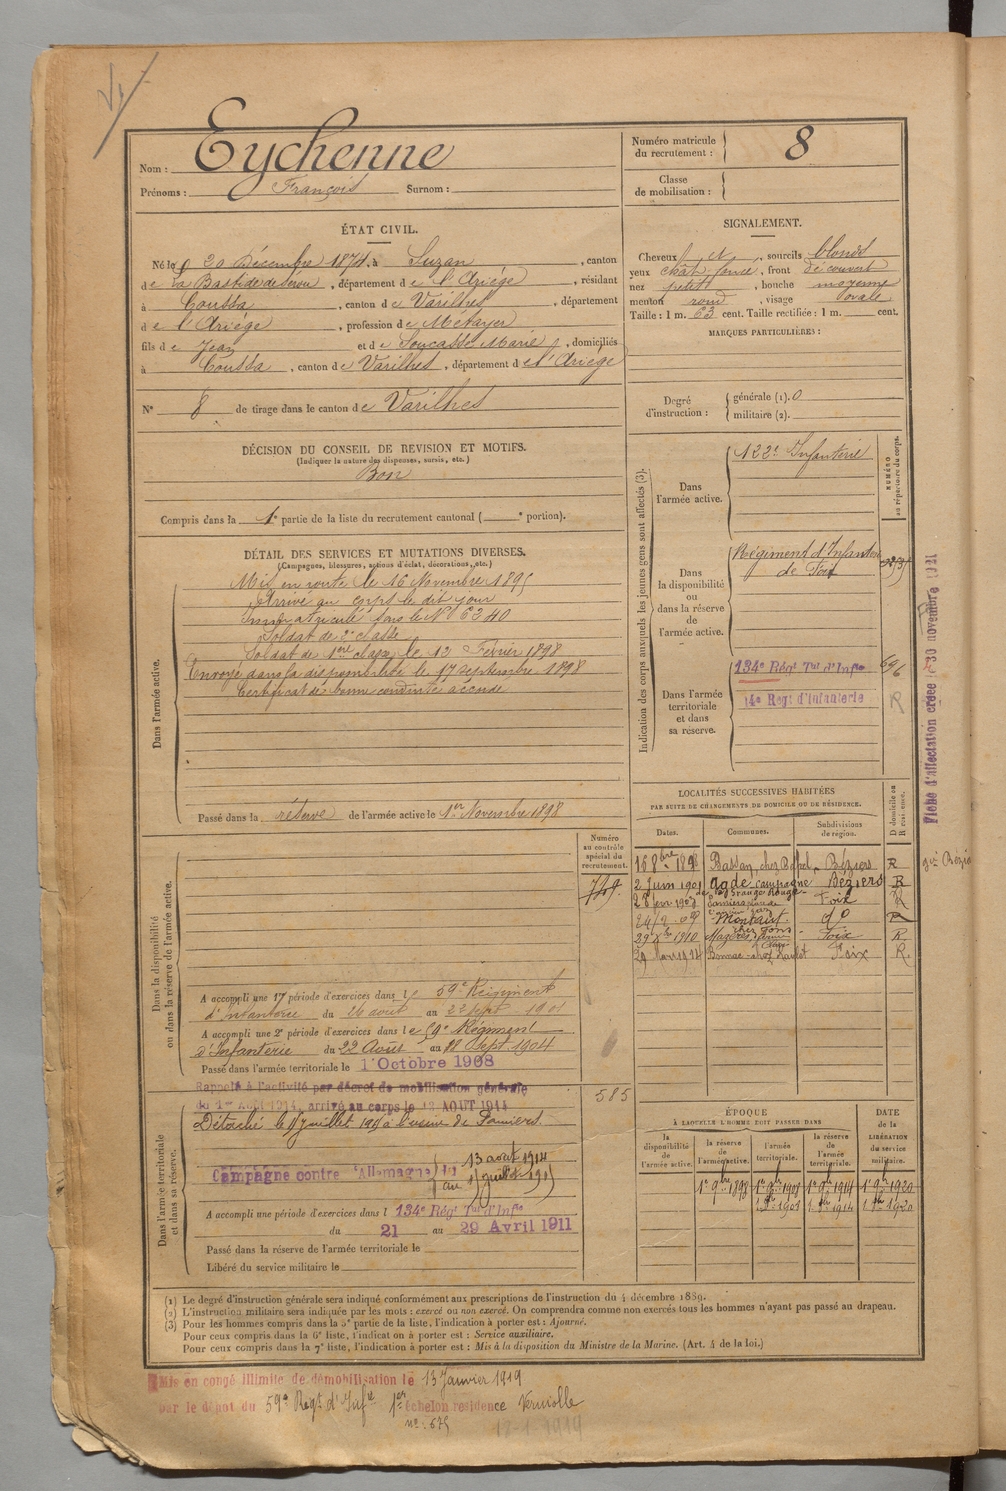 Nom : Eychenne
Prénoms : François Surnom :
Numéro matricule du recrutement : 8
Classe de mobilisation :
ÉTAT CIVIL.
Né le 20 Décembre 1874, à Suzan, canton
de La Bastide de Serou, département de l'Ariège, résidant
à Coussa, canton de Varilhes, département
de l'Ariège, profession de Métayer
fils de Jean et de Soucasse Marie, domiciliés
à Coussa, canton de Varilhes, département de l'Ariège
N° 8 de tirage dans le canton de Varilhes
SIGNALEMENT.
Cheveux et, sourcils blonds
yeux chat. foncé, front découvert
nez petit, bouche moyenne
menton rond, visage ovale
Taille : 1 m. 63 cent. Taille rectifiée : 1 m. cent.
MARQUES PARTICULIÈRES :
Degré d'instruction : générale (1). 0
militaire (2).
DÉCISION DU CONSEIL DE REVISION ET MOTIFS.
(Indiquer la nature des dispenses, sursis, etc.)
Bon
Compris dans la 1e partie de la liste du recrutement cantonal ( e portion).
DÉTAIL DES SERVICES ET MUTATIONS DIVERSES.
(Campagnes, blessures, actions d'éclat, décorations, etc.)
Dans l'armée active.
Mis en route le 16 Novembre 1895
Arrivé au corps le dit jour
Immatriculé sous le N° 6340
Soldat de 2e classe
Soldat de 1ère classe le 12 Février 1898
Envoyé dans la disponibilité le 17 septembre 1898
Certificat de bonne conduite accordé
Passé dans la réserve de l'armée active le 1er Novembre 1898
Indication des corps auxquels les jeunes gens sont affectés (3).
NUMÉRO au répertoire du corps.
Dans l'armée active.
122e Infanterie
Dans la disponibilité ou dans la réserve de l'armée active.
Régiment d'Infanterie
de Foix
Dans l'armée territoriale et dans sa réserve.
134e Régt Tal d'Infie 696
14e Régt d'Infanterie R
Fiche d'affectation créée le 30 novembre
LOCALITÉS SUCCESSIVES HABITÉES
PAR SUITE DE CHANGEMENTS DE DOMICILE OU DE RÉSIDENCE.
Dates. Communes. Subdivisions de région. D domicile ou R résidence.
16 8bre 1898 Bassan, chez Béziers R
2 Juin 1901 Agde campagne Béziers R
de la Grange Rouge
Foix R
Montaut. do R
1910 Mazères Foix R
29 Mars 1914 Bonnac Foix R.
Dans la disponibilité ou dans la réserve de l'armée active.
Numéro au contrôle spécial du recrutement.
749
A accompli une 1re période d'exercices dans le 59e Régiment
d'Infanterie du 26 août au 22 sept 1901
A accompli une 2e période d'exercices dans le 59e Régiment
d'Infanterie du 22 Août au 18 Sept. 1904
Passé dans l'armée territoriale le 1er Octobre 1908
Rappelé à l'activité par décret de mobilisation générale
du 1er Août 1914, arrivé au corps le 13 AOUT 1914
585
Dans l'armée territoriale et dans sa réserve.
Détaché le 15 juillet 1915 à l'usine de Pamiers.
Campagne contre l'Allemagne du 13 août 1914
au 15 juillet 1915
A accompli une période d'exercices dans l 134e Régt Tal d'Infie
du 21 au 29 Avril 1911
Passé dans la réserve de l'armée territoriale le
Libéré du service militaire le
ÉPOQUE
A LAQUELLE L'HOMME DOIT PASSER DANS
la disponibilité de l'armée active.
la réserve de l'armée active.
l'armée territoriale.
la réserve de l'armée territoriale.
DATE de la LIBÉRATION du service militaire.
1er 9bre 1898 1er 9bre 1908 1er 9bre 1914 1er 9bre 1920
1er 8bre 1908 1er 8bre 1914 1er 8bre 1920
(1) Le degré d'instruction générale sera indiqué conformément aux prescriptions de l'instruction du 4 décembre 1889.
(2) L'instruction militaire sera indiquée par les mots : exercé ou non exercé. On comprendra comme non exercés tous les hommes n'ayant pas passé au drapeau.
(3) Pour les hommes compris dans la 5e partie de la liste, l'indication à porter est : Ajourné.
Pour ceux compris dans la 6e liste, l'indication à porter est : Service auxiliaire.
Pour ceux compris dans la 7e liste, l'indication à porter est : Mis à la disposition du Ministre de la Marine. (Art. 4 de la loi.)
Mis en congé illimité de démobilisation le 13 Janvier 1919
par le dépôt du 59e Régt d'Infie 1er échelon résidence Verniolle
n° : 675